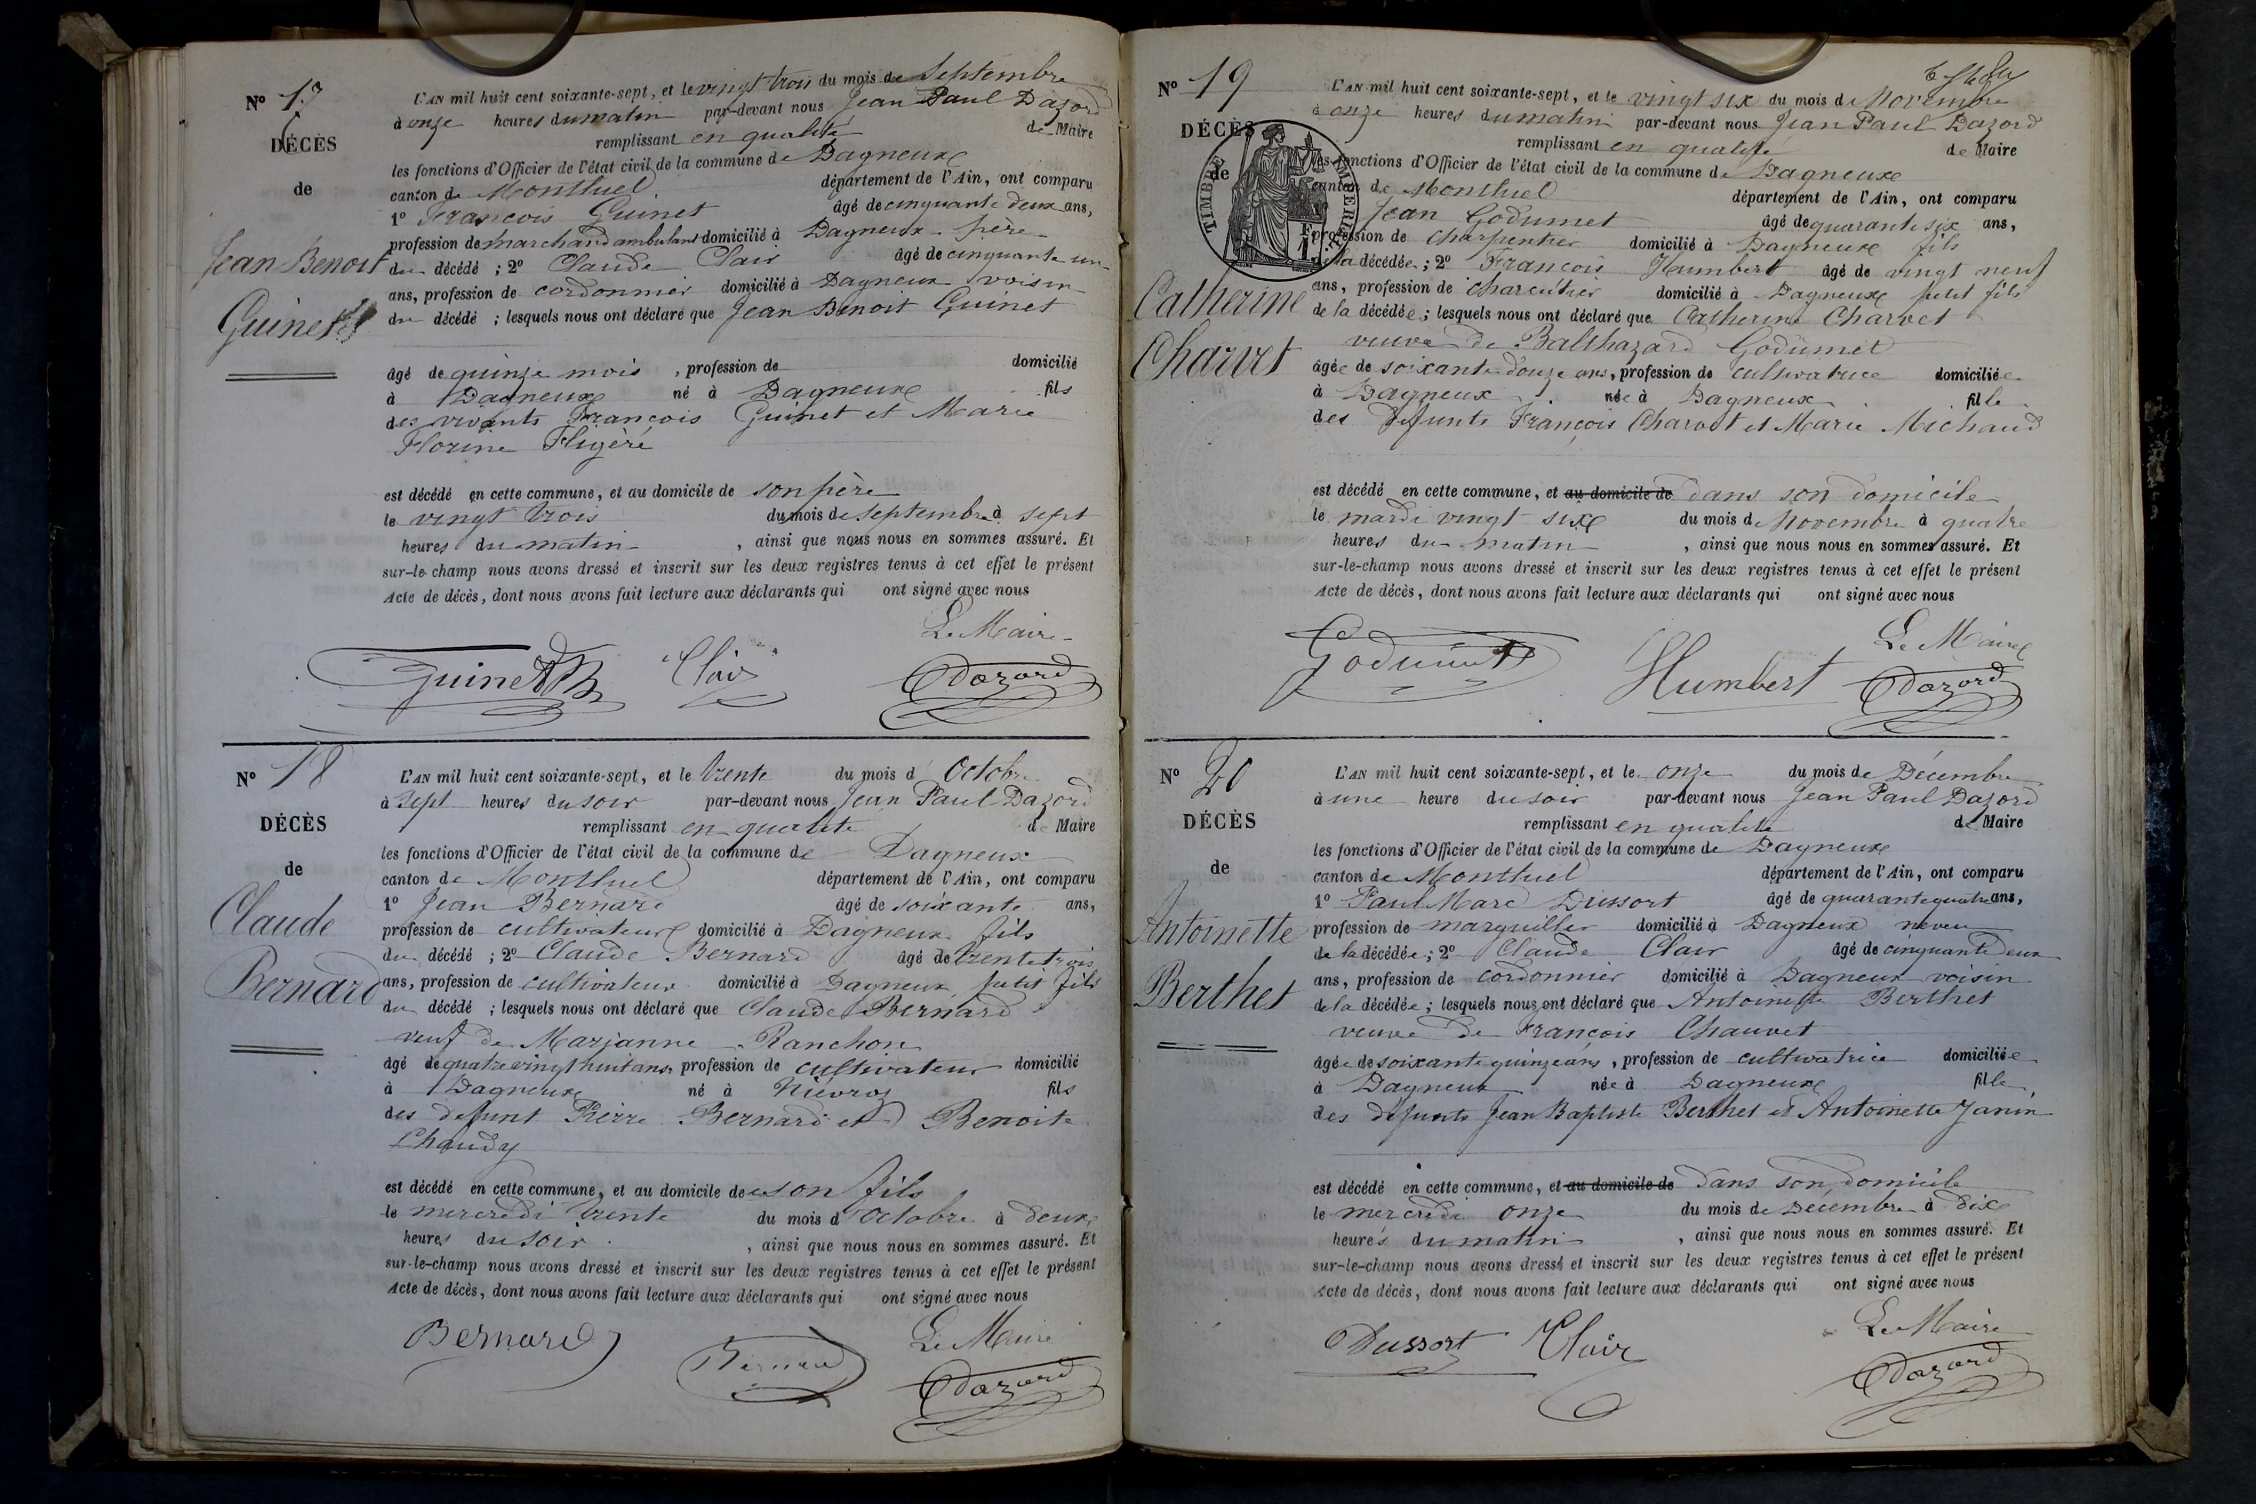 Nº 17
DÉCÈS
de
Jean Benoit
Guinet
L'AN mil huit cent soixante-sept, et le vingt trois du mois de Septembre
à onze heures du matin par-devant nous Jean Paul Dazord
remplissant en qualité de Maire
les fonctions d'Officier de l'état civil de la commune de Dagneux
canton de Montluel département de l'Ain, ont comparu
1º François Guinet âgé de cinquante deux ans,
profession de marchand ambulant domicilié à Dagneux père
du décédé ; 2º Claude Clair âgé de cinquante un
ans, profession de cordonnier domicilié à Dagneux voisin
du décédé ; lesquels nous ont déclaré que Jean Benoit Guinet
âgé de quinze mois , profession de domicilié
à Dagneux né à Dagneux fils
des vivants François Guinet et Marie
Florine Fligéré
est décédé en cette commune, et au domicile de son père
le vingt trois du mois de Septembre à sept
heures du matin , ainsi que nous nous en sommes assuré. Et
sur-le-champ nous avons dressé et inscrit sur les deux registres tenus à cet effet le présent
Acte de décès, dont nous avons fait lecture aux déclarants qui ont signé avec nous
Le Maire
Guinet Clair Dazord
Nº 18
DÉCÈS
de
Claude
Bernard
L'AN mil huit cent soixante-sept, et le trente du mois d'Octobre
à sept heures du soir par-devant nous Jean Paul Dazord
remplissant en qualité de Maire
les fonctions d'Officier de l'état civil de la commune de Dagneux
canton de Montluel département de l'Ain, ont comparu
1º Jean Bernard âgé de soixante ans,
profession de cultivateur domicilié à Dagneux fils
du décédé ; 2º Claude Bernard âgé de trente trois
ans, profession de cultivateur domicilié à Dagneux petit fils
du décédé ; lesquels nous ont déclaré que Claude Bernard
veuf de Marianne Ranchon
âgé de quatre vingt huit ans, profession de cultivateur domicilié
à Dagneux né à Niévroz fils
des defunt Pierre Bernard et Benoite
Chaudy
est décédé en cette commune, et au domicile de son fils
le mercredi trente du mois d'Octobre à deux
heures du soir , ainsi que nous nous en sommes assuré. Et
sur-le-champ nous avons dressé et inscrit sur les deux registres tenus à cet effet le présent
Acte de décès, dont nous avons fait lecture aux déclarants qui ont signé avec nous
Le Maire
Bernard Bernard Dazord
Nº 19
DÉCÈS
de
TIMBRE IMPERIAL
Catherine
Charvet
L'AN mil huit cent soixante-sept, et le vingt six du mois de Novembre
à onze heures du matin par-devant nous Jean Paul Dazord
remplissant en qualité de Maire
les fonctions d'Officier de l'état civil de la commune de Dagneux
canton de Montluel département de l'Ain, ont comparu
Jean Godumet âgé de quarante six ans,
profession de charpentier domicilié à Dagneux fils
de la décédée ; 2º François Humbert âgé de vingt neuf
ans, profession de charcutier domicilié à Dagneux petit fils
de la décédée ; lesquels nous ont déclaré que Catherine Charvet
veuve de Balthazard Godumet
âgée de soixante douze ans, profession de cultivatrice domiciliée
à Dagneux née à Dagneux fille
des defunts François Charvet et Marie Michaud
est décédé en cette commune, et au domicile de dans son domicile
le mardi vingt six du mois de Novembre à quatre
heures du matin , ainsi que nous nous en sommes assuré. Et
sur-le-champ nous avons dressé et inscrit sur les deux registres tenus à cet effet le présent
Acte de décès, dont nous avons fait lecture aux déclarants qui ont signé avec nous
Le Maire
Godumet Humbert Dazord
Nº 20
DÉCÈS
de
Antoinette
Berthet
L'AN mil huit cent soixante-sept, et le onze du mois de Décembre
à une heure du soir par-devant nous Jean Paul Dazord
remplissant en qualité de Maire
les fonctions d'Officier de l'état civil de la commune de Dagneux
canton de Montluel département de l'Ain, ont comparu
1º Paul Marc Dussort âgé de quarante quatre ans,
profession de marguiller domicilié à Dagneux neveu
de la décédée ; 2º Claude Clair âgé de cinquante deux
ans, profession de cordonnier domicilié à Dagneux voisin
de la décédée ; lesquels nous ont déclaré que Antoinette Berthet
veuve de François Chauvet
âgée de soixante quinze ans , profession de cultivatrice domiciliée
à Dagneux née à Dagneux fille
des defunts Jean Baptiste Berthet et Antoinette Janin
est décédé en cette commune, et au domicile de dans son domicile
le mercredi onze du mois de Décembre à dix
heures du matin , ainsi que nous nous en sommes assuré. Et
sur-le-champ nous avons dressé et inscrit sur les deux registres tenus à cet effet le présent
Acte de décès, dont nous avons fait lecture aux déclarants qui ont signé avec nous
Le Maire
Dussort Clair Dazord